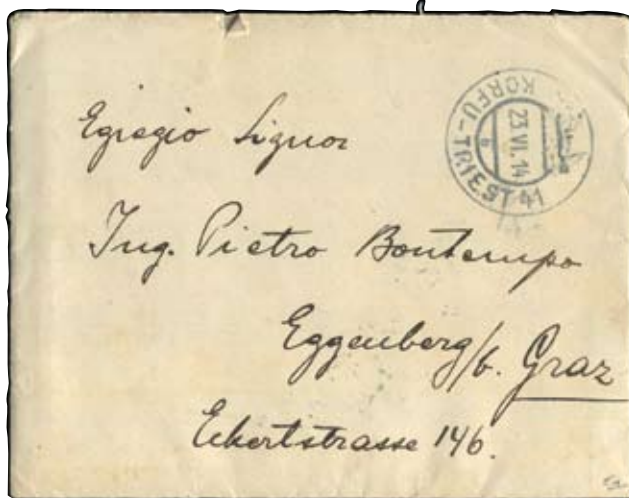 KORFU-TRIEST 41
23.VI.14
b
Egregio Signor
Ing. Pietro Bontempo
Eggenberg/b. Graz
Eckertstrasse 146.